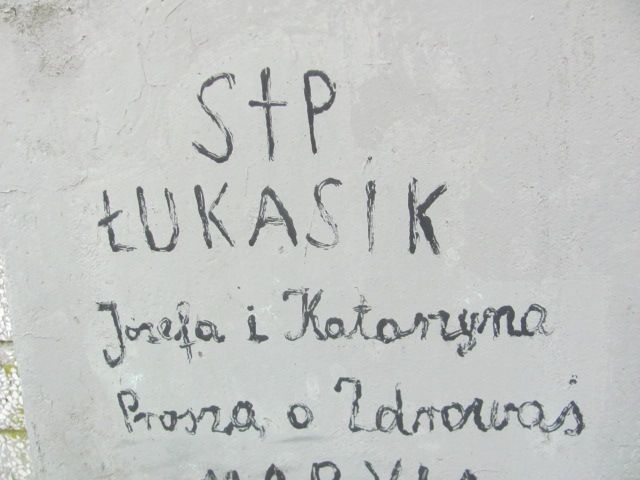 S†P
ŁUKASIK
Józefa i Katarzyna
Proszą o Zdrowaś
MARYJA